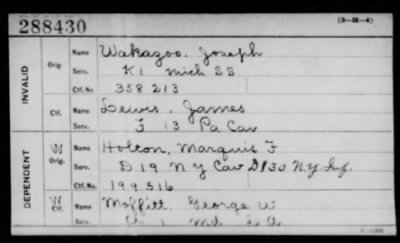 288430
(3—M—4)
INVALID
Orig
Name Wakazoo, Joseph
Serv. K 1 Mich SS
Ctf. No. 358 213
Ctf.
Name Lewis, James
Serv. F 13 Pa Cav
DEPENDENT
W Orig.
Name Holton, Marquis F
Serv. D 19 N Y Cav D 130 N.Y. Inf.
Ctf. No. 199 516
W Ctf.
Name Moffitt, George W
Serv. 1 Md